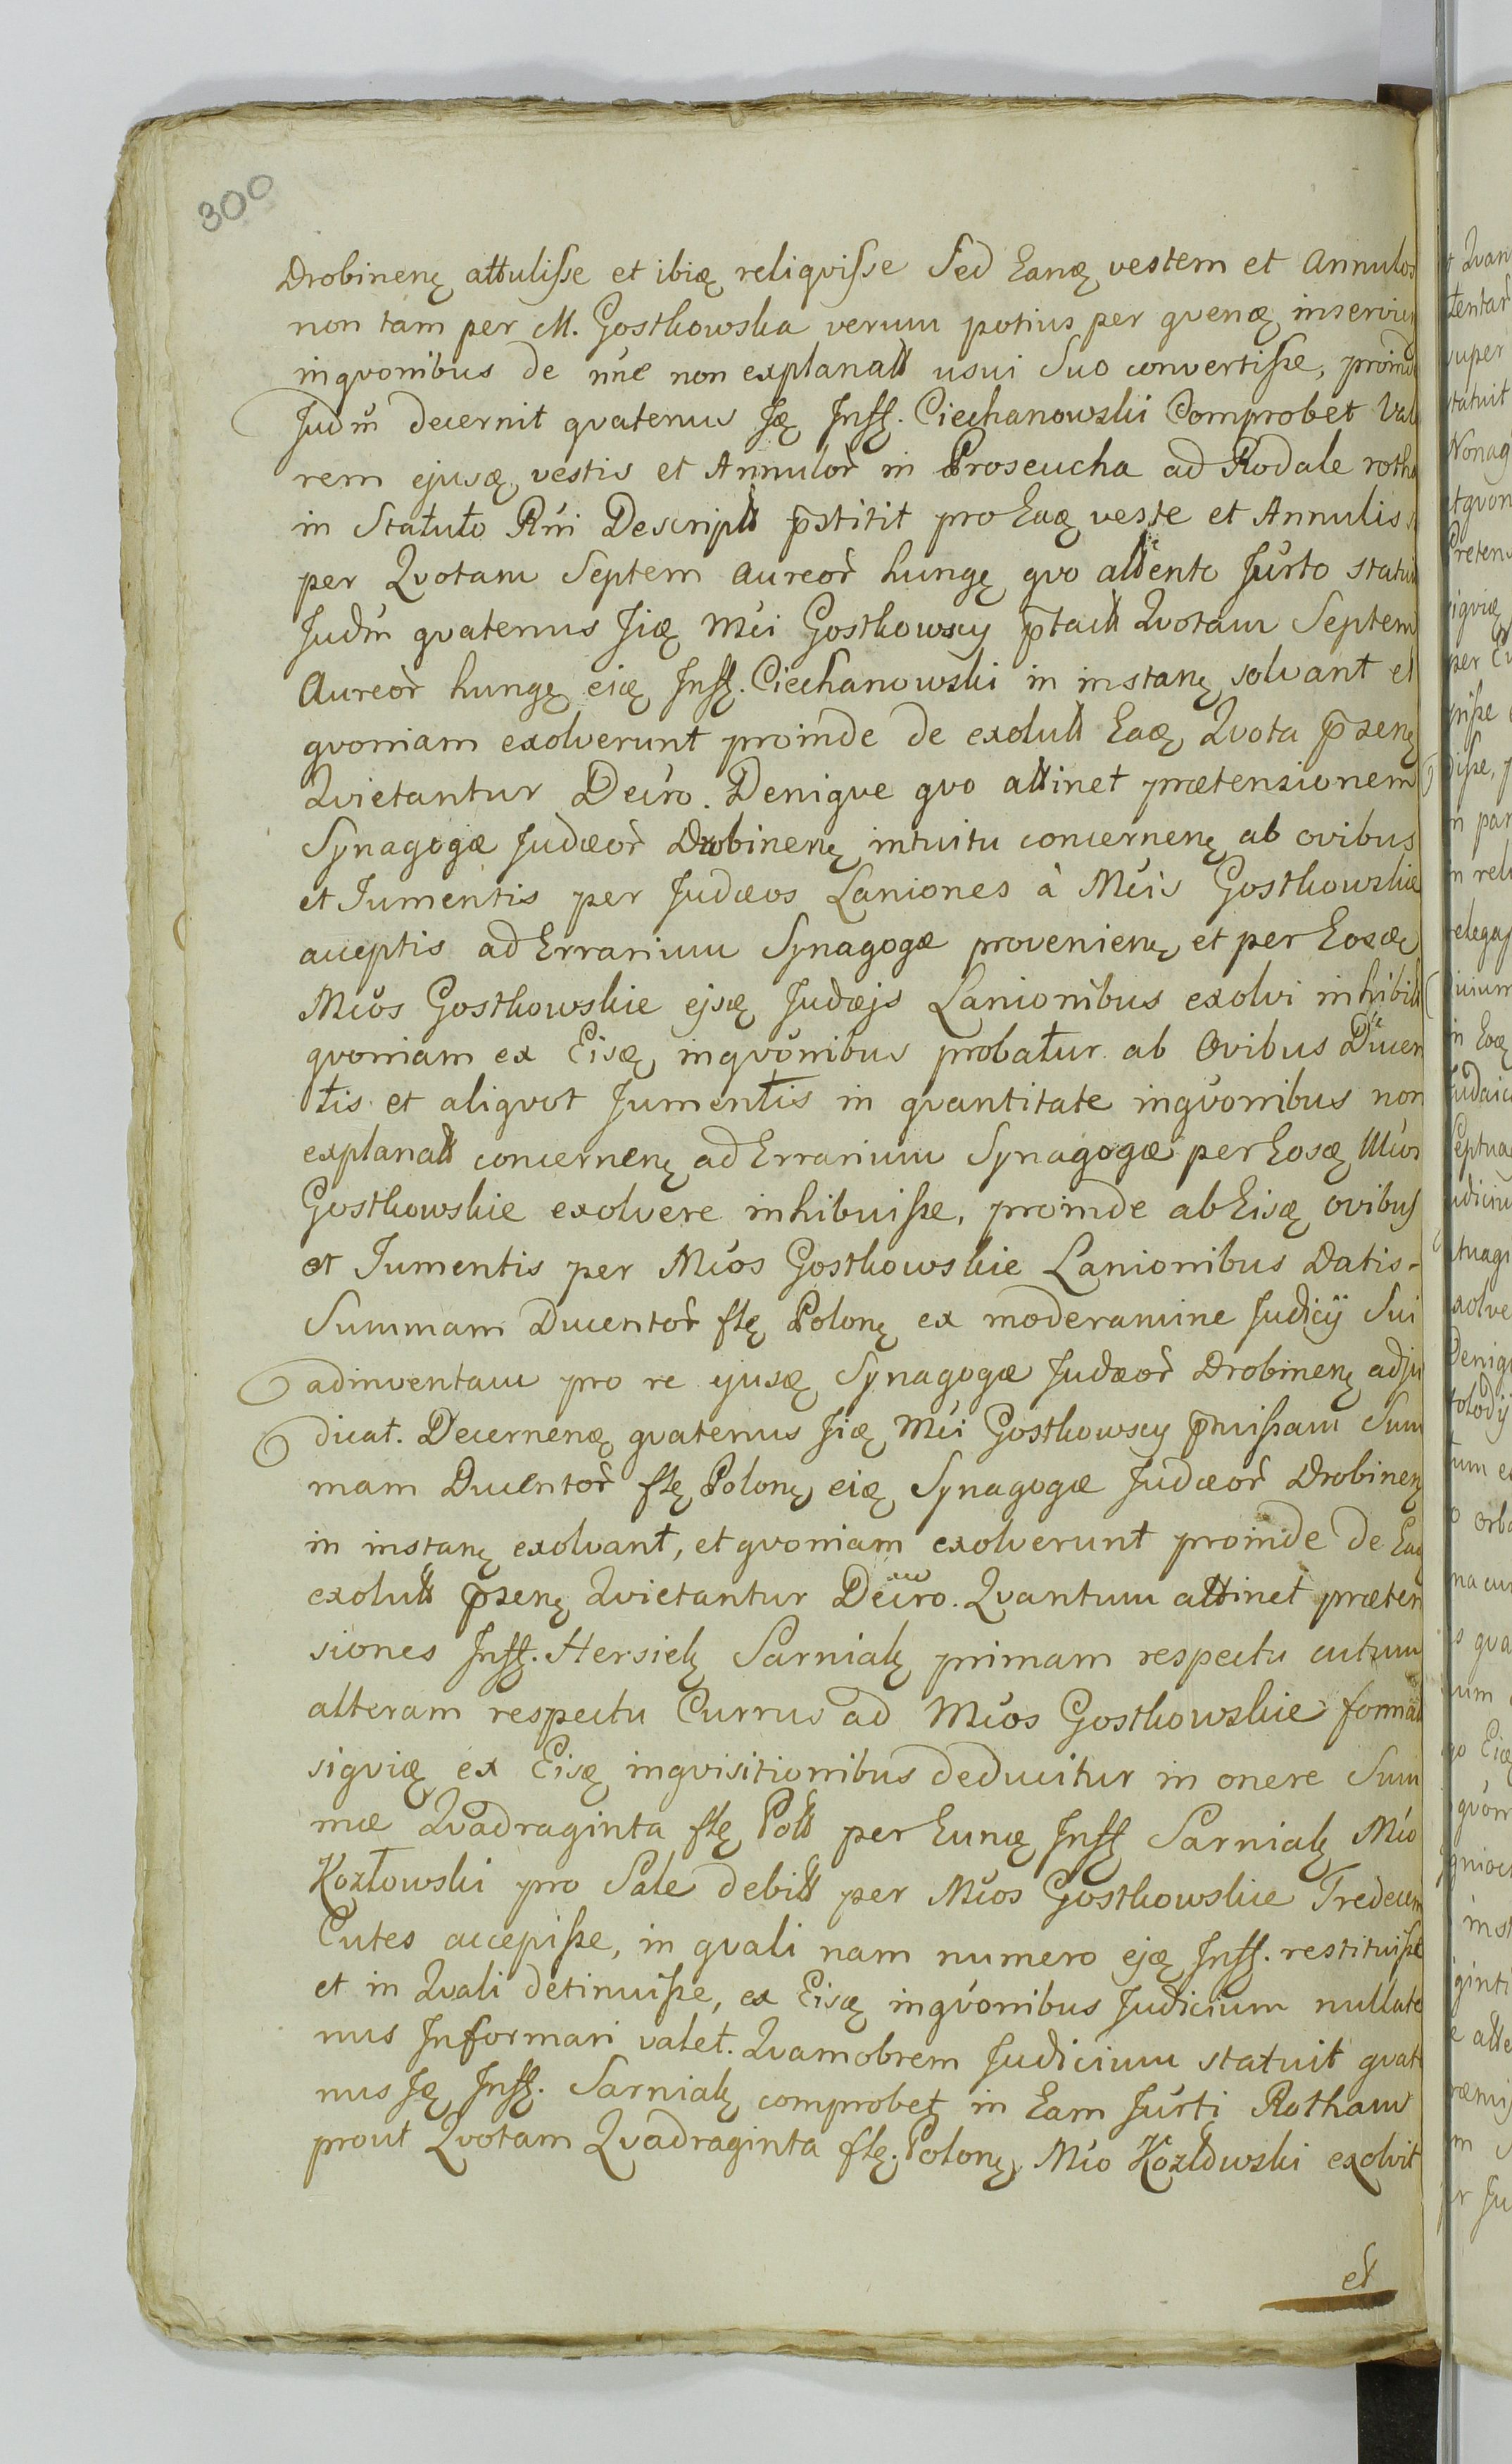 300
Drobinenę attulisse et ibię reliqvisse Sed Eanę vestem et Annulos
non tam per M. Gostkowska verum potius per qvenę inserviu
inqvonibus de nne non explanatt usui Suo convertisse, proind
Judm decernit qvatenus Ję Inſſ. Ciechanowski Comprobet Val
rem ejusę vestis et Annulor in Proseucha ad Rodale rotha
in Statuto Rni Descriptt pstitit pro Eaę veste et Annulis
per Qvotam Septem Aureor hungę qvo attento Jurto statuit
Judm qvatenus Jię Mci Gostkowscy ptactt Qvotam Septem
Aureor hungę eię Inſſ. Ciechanowski in instanę solvant et
qvoniam exolverunt proinde de exolutt Eaę Qvota pzenę
Qvietantur Decro. Deniqve qvo attinet prætensionem
Synagogæ Judæor Drobinenę intuitu concernenę ab ovibus
et Iumentis per Judæos Laniones à Mcis Gostkowskie
acceptis ad Errarium Synagogæ provenienę et per Eosdę
Mcos Gostkowskie ejsę Judæjs Lanionibus exolvi inhibitt
qvoniam ex Eisę inqvonibus probatur ab Ovibus Ducen
tis et aliqvot Jumentis in qvantitate inqvonibus non
explanatt concernenę ad Errarium Synagogæ per Eosę Mcos
Gostkowskie exolvere inhibuisse, proinde ab Eisę ovibus
et Iumentis per Mcos Gostkowskie Lanionibus Datis
Summam Ducentor flę Polonę ex moderamine Judicij Sui
adinventam pro re ejusę Synagogæ Judæor Drobinenę adju
dicat. Decernenę qvatenus Jię Mci Gostkowscy pmissam Sum
mam Ducentor flę Polonę eię Synagogæ Judæor Drobinenę
in instanę exolvant, et qvoniam exolverunt proinde de Eaę
exolutt pzenę Qvietantur Decro. Qvantum attinet præten
siones Inſſ. Hersiek Sarniak primam respectu cutium
alteram respectu Currus ad Mcos Gostkowskie format
siqvię ex Eisę inqvisitionibus deducitur in onere Sum
mæ Qvadraginta flę Poll per Eunę Inſſ Sarniak Mco
Kozłowski pro Sale debitt per Mcos Gostkowskie Tredecem
Cutes accepisse, in qvali nam numero eję Inſſ. restituisse
et in Qvali detinuisse, ex Eisę inqvonibus Judicium nullate
nus Informari valet. Qvamobrem Judicium statuit qvate
nus Ję Inſſ. Sarniak comprobet in Eam Jurti Rotham
prout Qvotam Qvadraginta flę. Polonę Mco Kozłowski exolvit
et